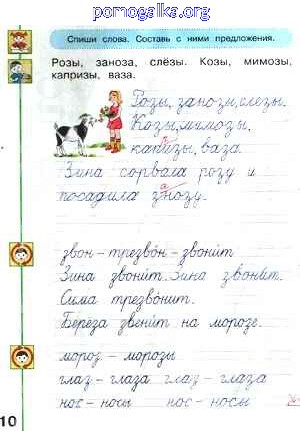 pomogalka.org
Спиши слова. Составь с ними предложения.
Розы, заноза, слёзы. Козы, мимозы,
капризы, ваза.
Розы, занози, слезы.
Козы, мимозы,
капизы, ваза.
Зина сорвала розу и
посадила знозу.
звон – трезво́н – звони́т
Зина звони́т. Зина звони́т.
Сима трезво́нит.
Берёза звени́т на морозе.
мороз – морозы
глаз – глаза глаз – глаза
нос – носы нос – носы
10